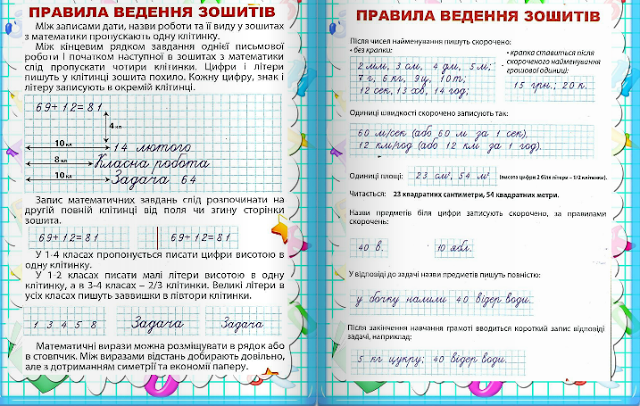 ПРАВИЛА ВЕДЕННЯ ЗОШИТІВ
Між записами дати, назви роботи та її виду у зошитах
з математики пропускають одну клітинку.
Між кінцевим рядком завдання однієї письмової
роботи і початком наступної в зошитах з математики
слід пропускати чотири клітинки. Цифри і літери
пишуть у клітинці зошита похило. Кожну цифру, знак і
літеру записують в окремій клітинці.
69+12=81
4 кл
10 кл 14 лютого
8 кл Класна робота
10 кл Задача 64
Запис математичних завдань слід розпочинати на
другій повній клітинці від поля чи згину сторінки
зошита.
69+12=81 69+12=81
У 1-4 класах пропонується писати цифри висотою в
одну клітинку.
У 1-2 класах писати малі літери висотою в одну
клітинку, а в 3-4 класах – 2/3 клітинки. Великі літери в
усіх класах пишуть заввишки в півтори клітинки.
1 3 4 5 8 Задача Задача
Математичні вирази можна розміщувати в рядок або
в стовпчик. Між виразами відстань добирають довільно,
але з дотриманням симетрії та економії паперу.
ПРАВИЛА ВЕДЕННЯ ЗОШИТІВ
Після чисел найменування пишуть скорочено:
• без крапки:
2 мм, 3 см, 4 дм, 5 м;
7 г, 6 кг, 9 ц, 10 т;
12 сек, 13 хв, 14 год;
• крапка ставиться після
скороченого найменування
грошової одиниці:
15 грн.; 20 к.
Одиниці швидкості скорочено записують так:
60 м/сек (або 60 м за 1 сек),
12 км/год (або 12 км за 1 год).
Одиниці площі: 23 см², 54 м² (висота цифри 2 біля літери – 1/2 клітинки).
Читається: 23 квадратних сантиметри, 54 квадратних метри.
Назви предметів біля цифри записують скорочено, за правилами
скорочень:
40 в. 10 ябл.
У відповіді до задачі назви предметів пишуть повністю:
у бочку налили 40 відер води.
Після закінчення навчання грамоті вводиться короткий запис відповіді
задачі, наприклад:
5 кг цукру; 40 відер води.